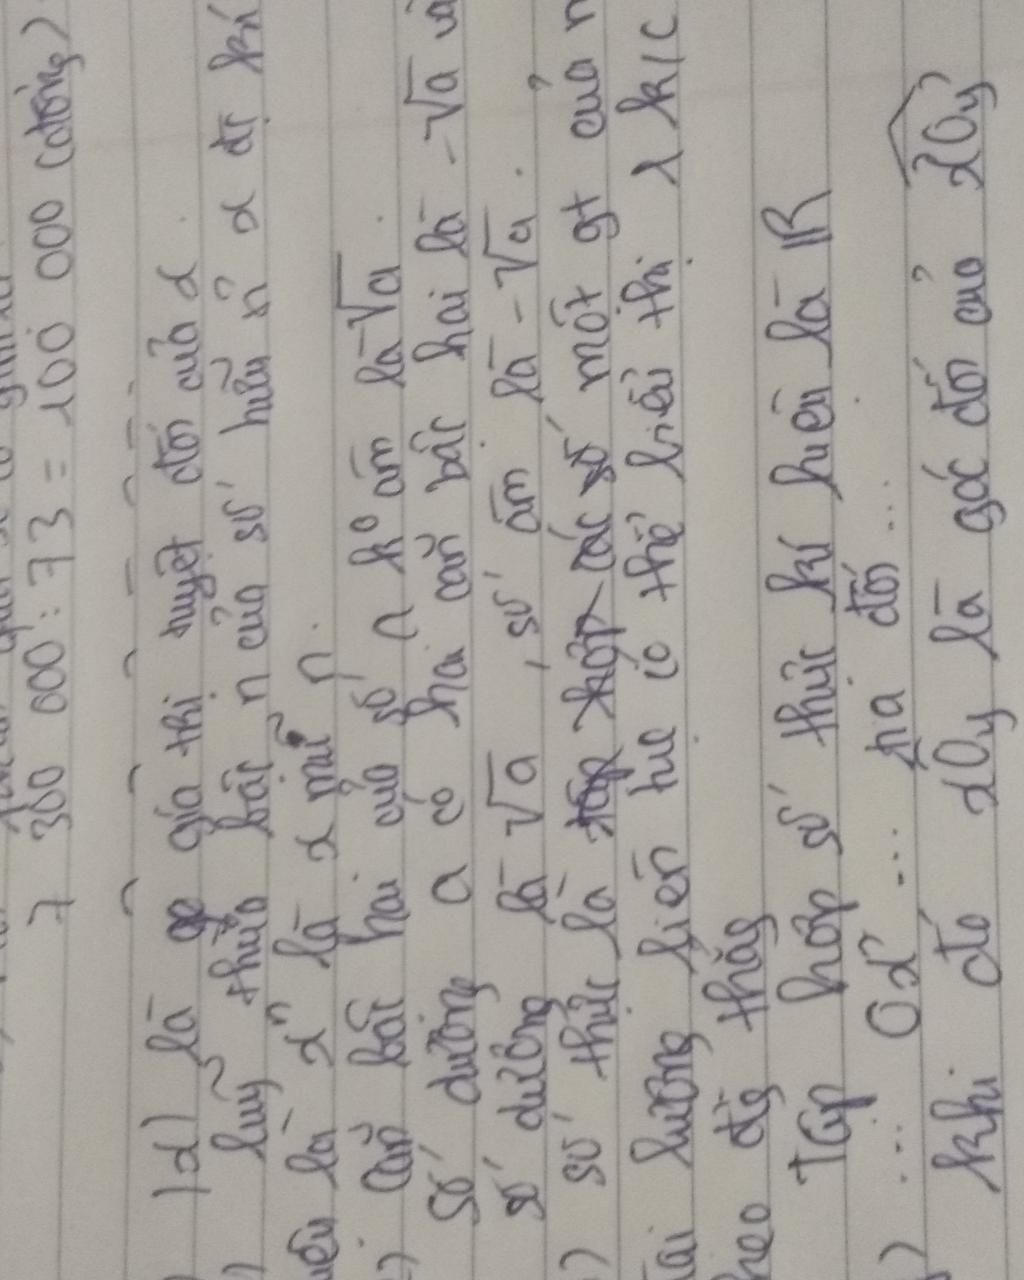 7 300 000 : 73 = 100 000 (đồng)
|x| là giá trị tuyệt đối của x
) luỹ thừa bậc n của số hữu tỉ x đc kí
hiệu là xⁿ là x mũ n.
) Căn bậc hai của số a k° âm là √a.
Số dương a có hai căn bậc hai là -√a và
số dương là √a, số âm là -√a.
) số thực là các số một gt của n
đại lượng liên hệ có thể biểu thị 1 k/c
theo đg thẳng
Tập hợp số thực kí hiệu là ℝ
) ... Ox ... tia đối ...
khi đó xOy là góc đối của xOy